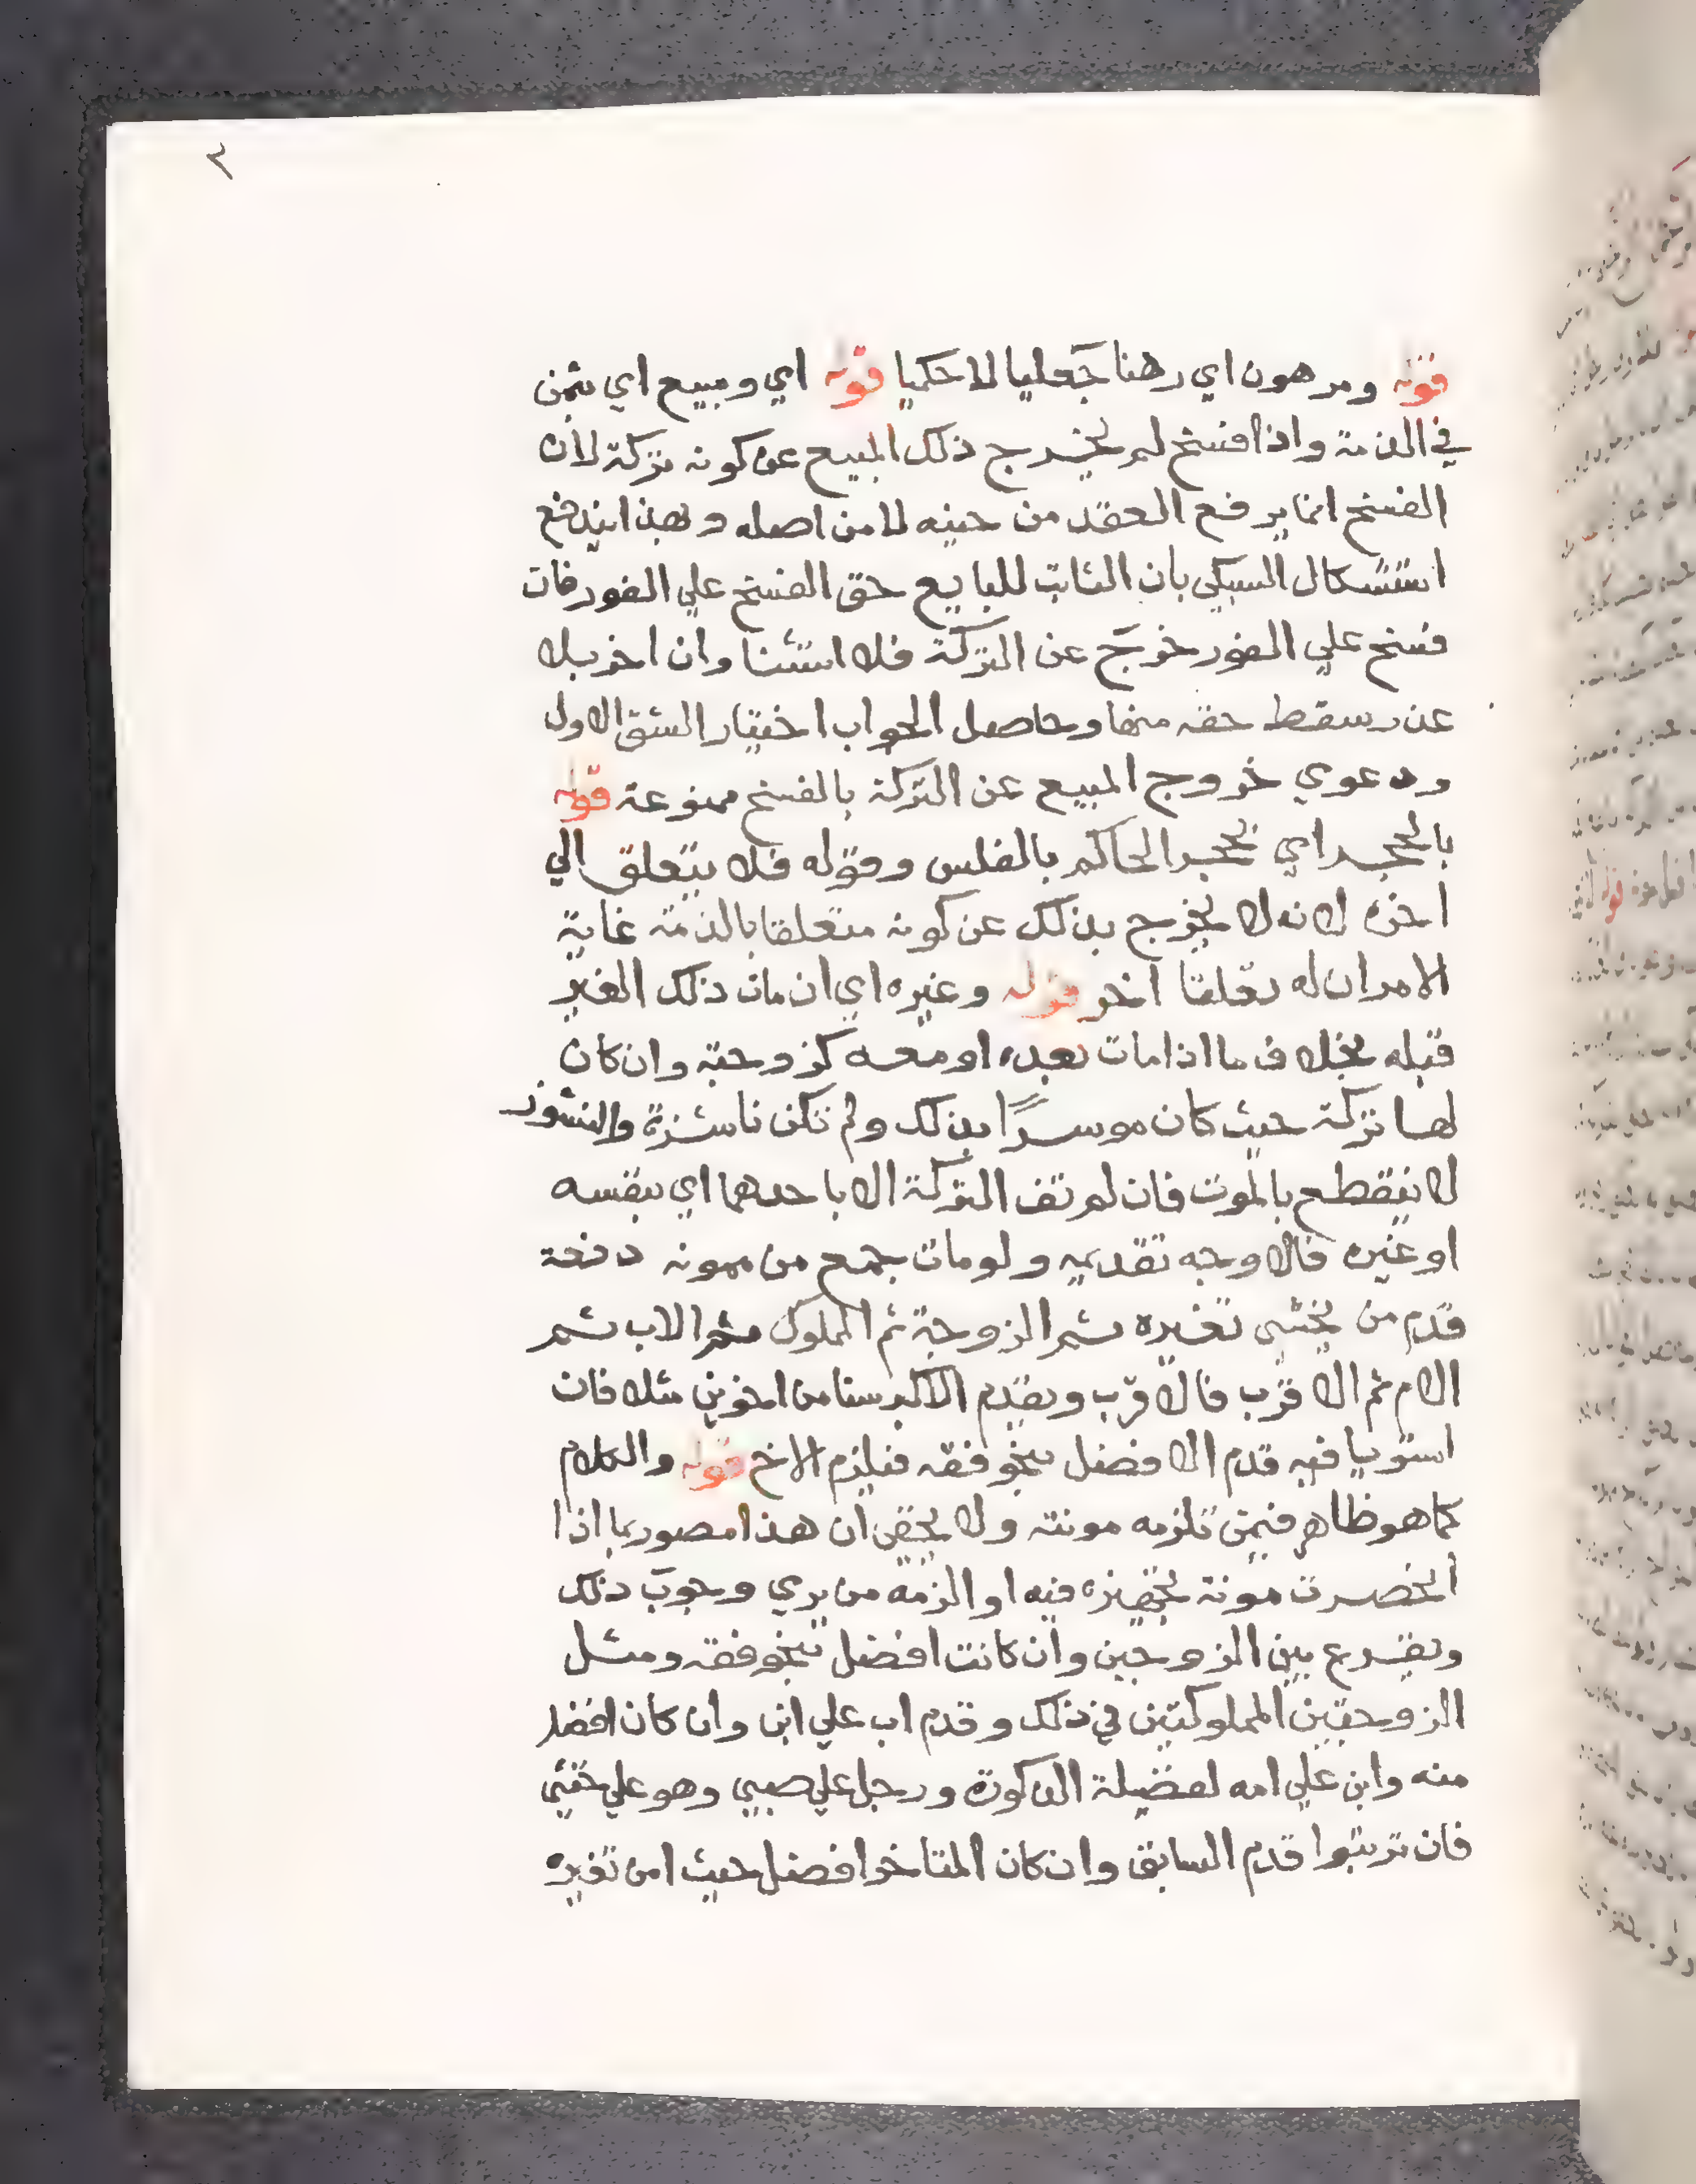 ٣
قوله ومرهون اي رهنا جعليا لا حكميا قوله اي ومبيع اي بثمن
في الذمة واذا فسخ لم يخرج ذلك المبيع عن كونه تركة لان
الفسخ انما يرفع العقد من حينه لا من اصله وبهذا يندفع
استشكال السبكي بان الثابت للبايع حق الفسخ علي الفور فان
فسخ علي الفور خرج عن التركة فلا استثنا وان اخر بلا
عذر سقط حقه منها وحاصل الجواب اختيار الشق الاول
ودعوي خروج المبيع عن التركة بالفسخ ممنوعة قوله
بالحجر اي بحجر الحاكم بالفلس وقوله فلا يتعلق الي
اخره لانه لا يخرج بذلك عن كونه متعلقا بالذمة غاية
الامر ان له تعلقا اخر قوله وغيره اي ان مات ذلك الغير
قبله بخلاف ما اذا مات بعده او معه كزوجته وان كان
لها تركة حيث كان موسرًا بذلك ولم تكن ناشزة والنشوز
لا ينقطع بالموت فان لم تف التركة الا باحدهما اي بنفسه
او غيره فالاوجه تقديمه ولو مات جمع من ممونه دفعة
قدم من يخشي تغيره ثم الزوجة ثم المملوك ثم الاب ثم
الام ثم الاقرب فالاقرب ويقدم الاكبر سنا من اخوين مثلا فان
استويا فيه قدم الافضل بنحو فقه فيلزم الاخ قوله والكلام
كما هو ظاهر فيمن تلزمه مونته ولا يخفي ان هذا مصور بما اذا
انحصرت مونة تجهيزه فيه او الزمه من يري وجوب ذلك
ويقرع بين الزوجين وان كانت افضل بنحو فقه ومثل
الزوجتين المملوكتين في ذلك وقدم اب علي ابن وان كان افضل
منه وابن علي امه لفضيلة الذكورة ورجل علي صبي وهو علي خنثي
فان ترتبوا قدم السابق وان كان المتاخر افضل حيث امن تغيره